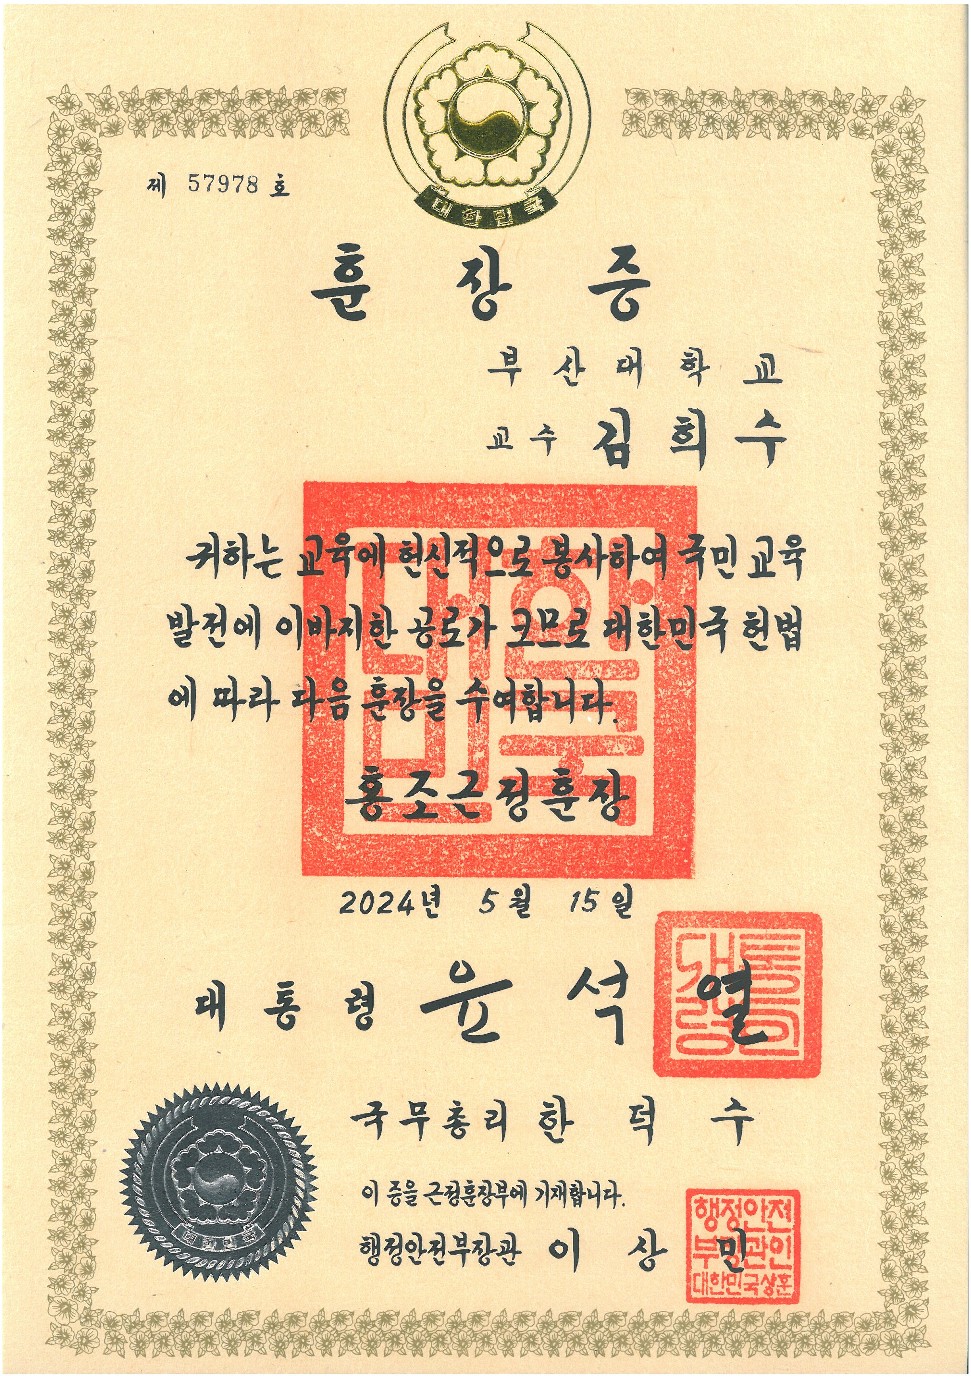 대한민국
제 57978 호
훈장증
부산대학교
교수 김희수
귀하는 교육에 헌신적으로 봉사하여 국민 교육
발전에 이바지한 공로가 크므로 대한민국 헌법
에 따라 다음 훈장을 수여합니다.
홍조근정훈장
대한민국
2024년 5월 15일
대통령 윤석열
국무총리 한덕수
이 증을 근정훈장부에 기재합니다.
행정안전부장관 이상민
행정안전
부장관인
대한민국상훈
대한민국